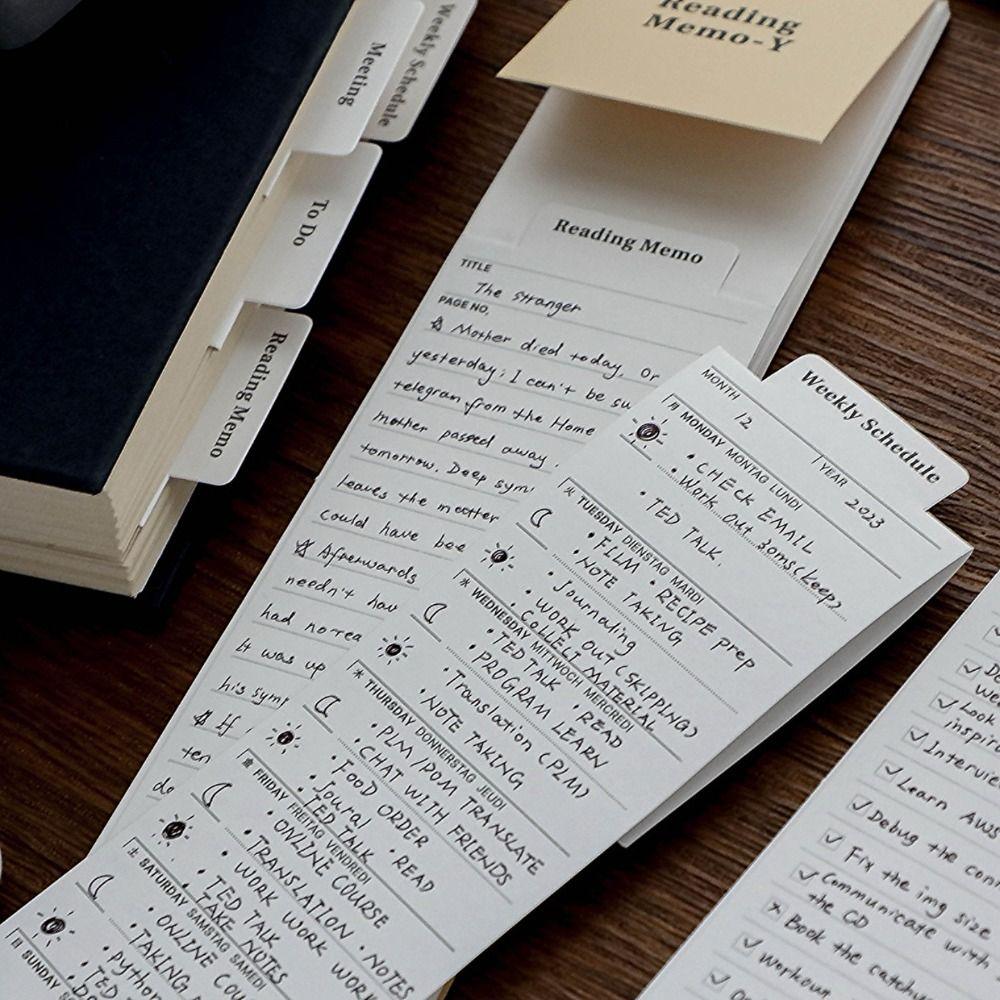 Weekly Schedule
Meeting
To Do
Reading Memo
Reading
Memo-Y
Reading Memo
TITLE
The stranger
PAGE NO.
Mother died today. Or
yesterday; I can't be su
telegram from the Home
mother passed away.
tomorrow. Deep sym
Leaves the matter
could have bee
Afterwards
needn't hav
had no rea
It was up
his sym
If
ten
do
Weekly Schedule
MONTH 12 YEAR 2023
月 MONDAY MONTAG LUNDI
• CHECK EMAIL
• Work out 30ms (keep)
• TED TALK.
火 TUESDAY DIENSTAG MARDI
• FILM • RECIPE prep
• NOTE TAKING
• Journaling
• WORK OUT (SKIPPING)
• COLLECT MATERIAL
水 WEDNESDAY MITTWOCH MERCREDI
• TED TALK • READ
• PROGRAM LEARN
• Translation (PLM)
• NOTE TAKING
木 THURSDAY DONNERSTAG JEUDI
• PLM/POM TRANSLATE
• CHAT WITH FRIENDS
• FOOD ORDER
• Joural • READ
• TED TALK
金 FRIDAY FREITAG VENDREDI
• ONLINE COURSE
• TRANSLATION • NOTES
• WORK WORK WORK
• TED TALK
• TAKE NOTES
土 SATURDAY SAMSTAG SAMEDI
• ONLINE COU
• TAKING
• python
• TED
日 SUNDAY
Look
inspira
Intervie
Learn AWS
Debug the con
Fix the img size
Communicate with
the CD
Book the catchup
Workout